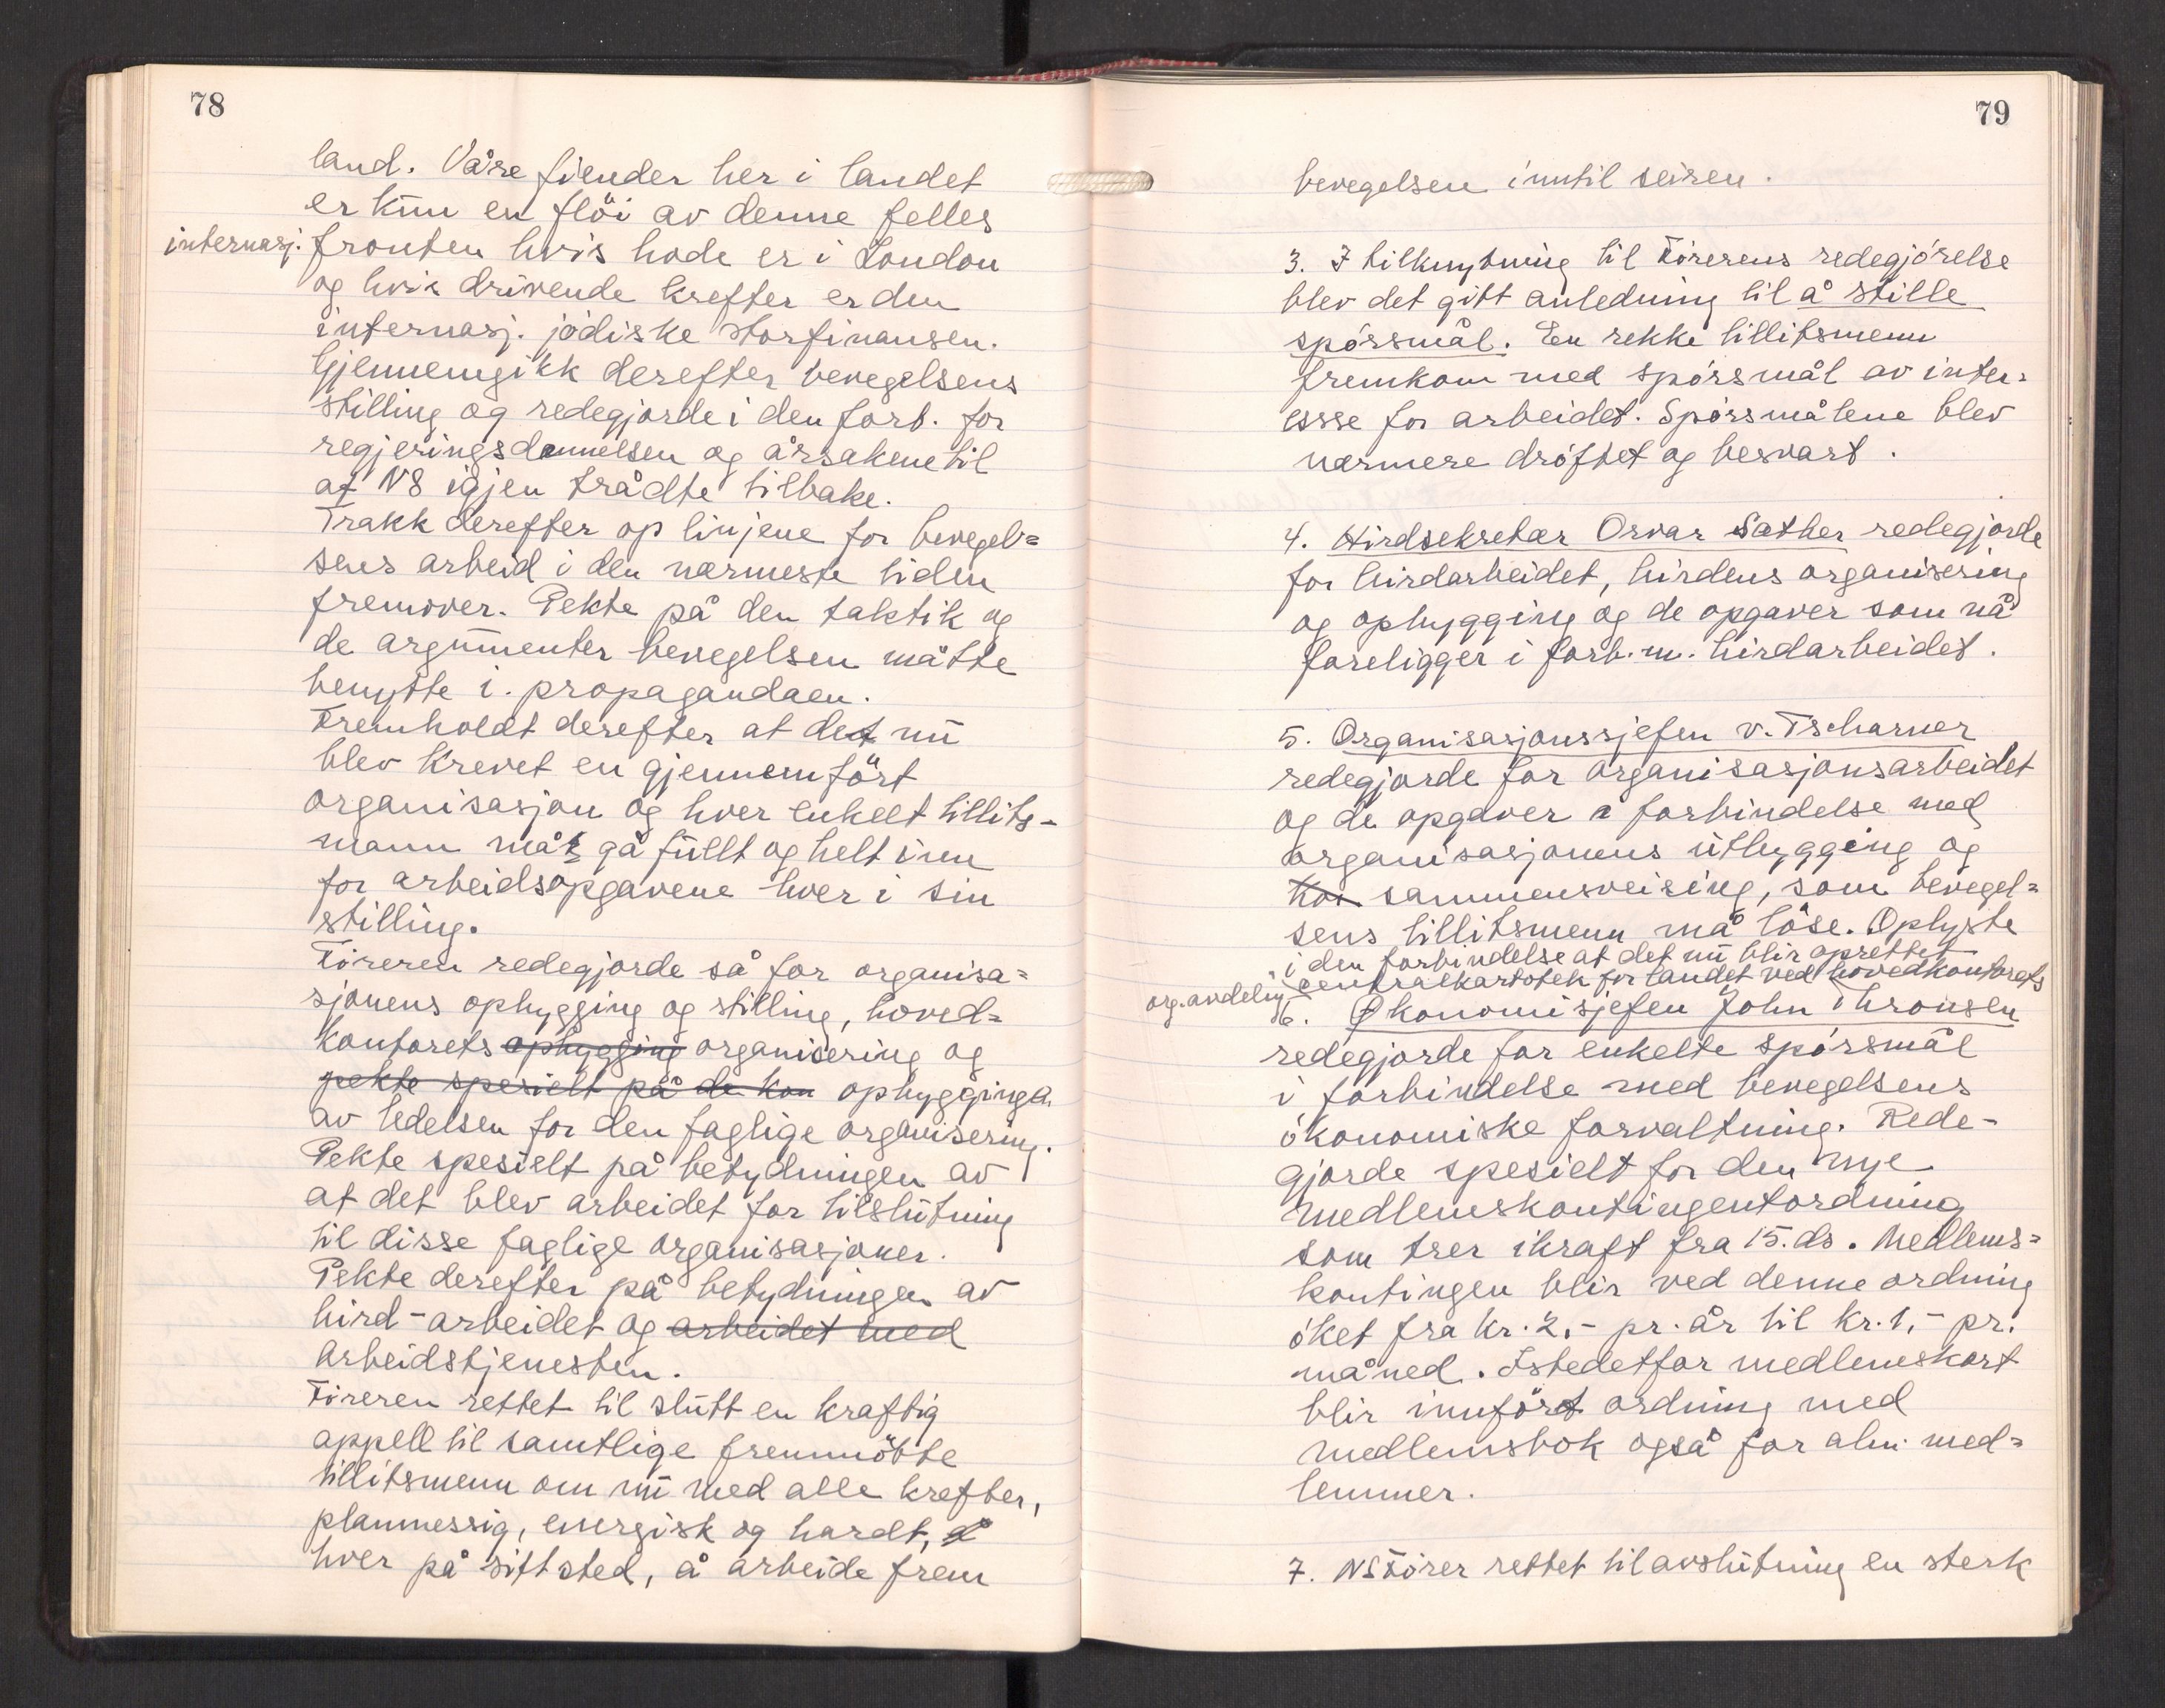 78
land. Våre fiender her i landet
er kun en flöi av denne felles
internasj. fronten hvis hode er i London
og hvis drivende krefter er den
internasj. jödiske storfinansen.
Gjennemgikk derefter bevegelsens
stilling og redegjorde i den forb. for
regjeringsdannelsen og årsakene til
at NS igjen trådte tilbake.
Trakk derefter op linjene for bevegel=
sens arbeid i den nærmeste tiden
fremover. Pekte på den taktik og
de argumenter bevegelsen måtte
benytte i. propagandaen.
Fremholdt derefter at det nu
blev krevet en gjennemfört
organisasjon og hver enkelt tillits-
mann må gå fullt og helt inn
for arbeidsopgavene hver i sin
stilling.
Föreren redegjorde så for organisa=
sjonens ophygging og stilling, hoved=
kontorets ophygging organisering og
pekte spesielt på de kon ophygginga
av ledelsen for den faglige organisering.
Pekte spesielt på betydningen av
at det blev arbeidet for tilslutning
til disse faglige organisasjoner.
Pekte derefter på betydningen av
hird-arbeidet og arbeidet med
arbeidstjenesten.
Föreren rettet til slutt en kraftig
appell til samtlige fremmötte
tillitsmenn om nu med alle krefter,
planmessig, energisk og hardt, å
hver på sitt sted, å arbeide frem
79
bevegelsen inntil seiren.
3. I tilknytning til Förerens redegjörelse
blev det gitt anledning til å stille
spörsmål. En rekke tillitsmenn
fremkom med spörsmål av inter=
essse for arbeidet. Spörsmålene blev
nærmere dröftet og besvart.
4. Hirdsekretær Orvar Sæther redegjorde
for hirdarbeidet, hirdens organisering
og ophygging og de opgaver som nå
foreligger i forb. m. hirdarbeidet.
5. Organisasjonssjefen v. Tscharner
redegjorde for organisasjonsarbeidet
og de opgaver i forbindelse med
organisasjonens uthygging og
sammensveising, som bevegel=
sens tillitsmenn må löse. Oplyste
i den forbindelse at det nu blir oprettet
centralkartotek for landet ved hovedkontorets
org. avdeling
6. Økonomisjefen John Thronsen
redegjorde for enkelte spörsmål
i forbindelse med bevegelsens
ökonomiske forvaltning. Rede-
gjorde spesielt for den nye
medlemskontingentordning
som trer ikraft fra 15. ds. Medlems=
kontingen blir ved denne ordning
öket fra kr. 2,- pr. år til kr. 1,- pr.
måned. Istedetfor medlemskort
blir innfört ordning med
medlemsbok også for alm. med=
lemmer.
7. NS Förer rettet til avslutning en sterk